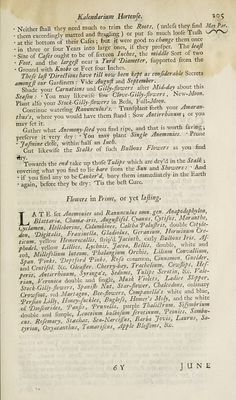 Kalendarium Hortense. 205
Neither shall they need much to trim the Roots, (unless they find May Par.
them exceedingly matted and stragling) or put so much loose Trash
at the bottom of their Cases; but it were good to change them once
in three or four Years into large ones, if they prosper. The least
Size of Cases ought to be of sixteen Inches, the middle Sort of two
Foot, and the largest near a Yard Diameter, supported from the
Ground with Knobs or Feet four Inches.
These last Directions have till now been kept as considerable Secrets
amongst our Gardners: Vide August and September.
Shade your Carnations and Gilly-flowers after Mid-day about this
Season: You may likewise sow Clove-Gilly-flowers, New-Moon.
Plant also your Stock-Gilly-flowers in Beds, Full-Moon.
Continue watering Ranunculus's: Transplant forth your Amaran-
thus's, where you would have them stand: Sow Antirrhinum; or you
may set it.
Gather what Anemony-Seed you find ripe, and that is worth saving,
preserve it very dry: You may plant Single Anemonies: Prune
Jasmine close, within half an Inch.
Cut likewise the Stalks of such Bulbous Flowers as you find
dry.
Towards the end take up those Tulips which are dry'd in the Stalk;
covering what you find to lie bare from the Sun and Showers: And
if you find any to be Canker'd, bury them immediately in the Earth
again, before they be dry: 'Tis the best Cure.
Flowers in Prime, or yet lasting.
LATE set Anemonies and Ranunculus omn. gen. Anapodophylon,
Blattaria, Chamæ-iris, Angustifol. Cyanus, Cytisus, Maranthe,
Cyclamen, Helleborine, Columbines, Caltha Palustris, double Cotyle-
don, Digitalis, Fraxinella, Gladiolus, Geranium, Horminum Cre-
ticum, yellow Hemerocallis, strip'd Jacinth, early Bulbous Iris, As-
phodel, yellow Lillies, Lychnis, Jacea, Bellis, double white and
red, Millefolium luteum, Phalangium Orchis, Lilium Convallium,
Span. Pinks, Deptford Pinks, Rosa common, Cinnamon, Guelder,
and Centifol. &c. Oleaster, Cherry-bay, Trachelium, Cowslips, Hes-
peris, Antirrhinum, Syringa's, Sedums, Tulips Serotin, &c. Vale-
rian, Veronica double and single, Musk Violets, Ladies Slipper,
Stock-Gilly-flowers, Spanish Nut, Star-flower, Chalcedons, ordinary
Crowfoot, red Martagon, Bee-flowers, Campanella's white and blue,
Persian Lilly, Honey-suckles, Bugloss, Homer's Moly, and the white
of Dioscorides, Pansis, Prunella, purple Thalictrum, Sisymbrium
double and simple, Leucoium bulbosum serotinum, Peonies, Sambu-
cus, Rosemary, Stæchas, Sea-Narcissus, Barba Jovis, Laurus, Sa-
tyrion, Oxyacanthus, Tamariscus, Apple Blossoms, &c.
6 Y
JUNE